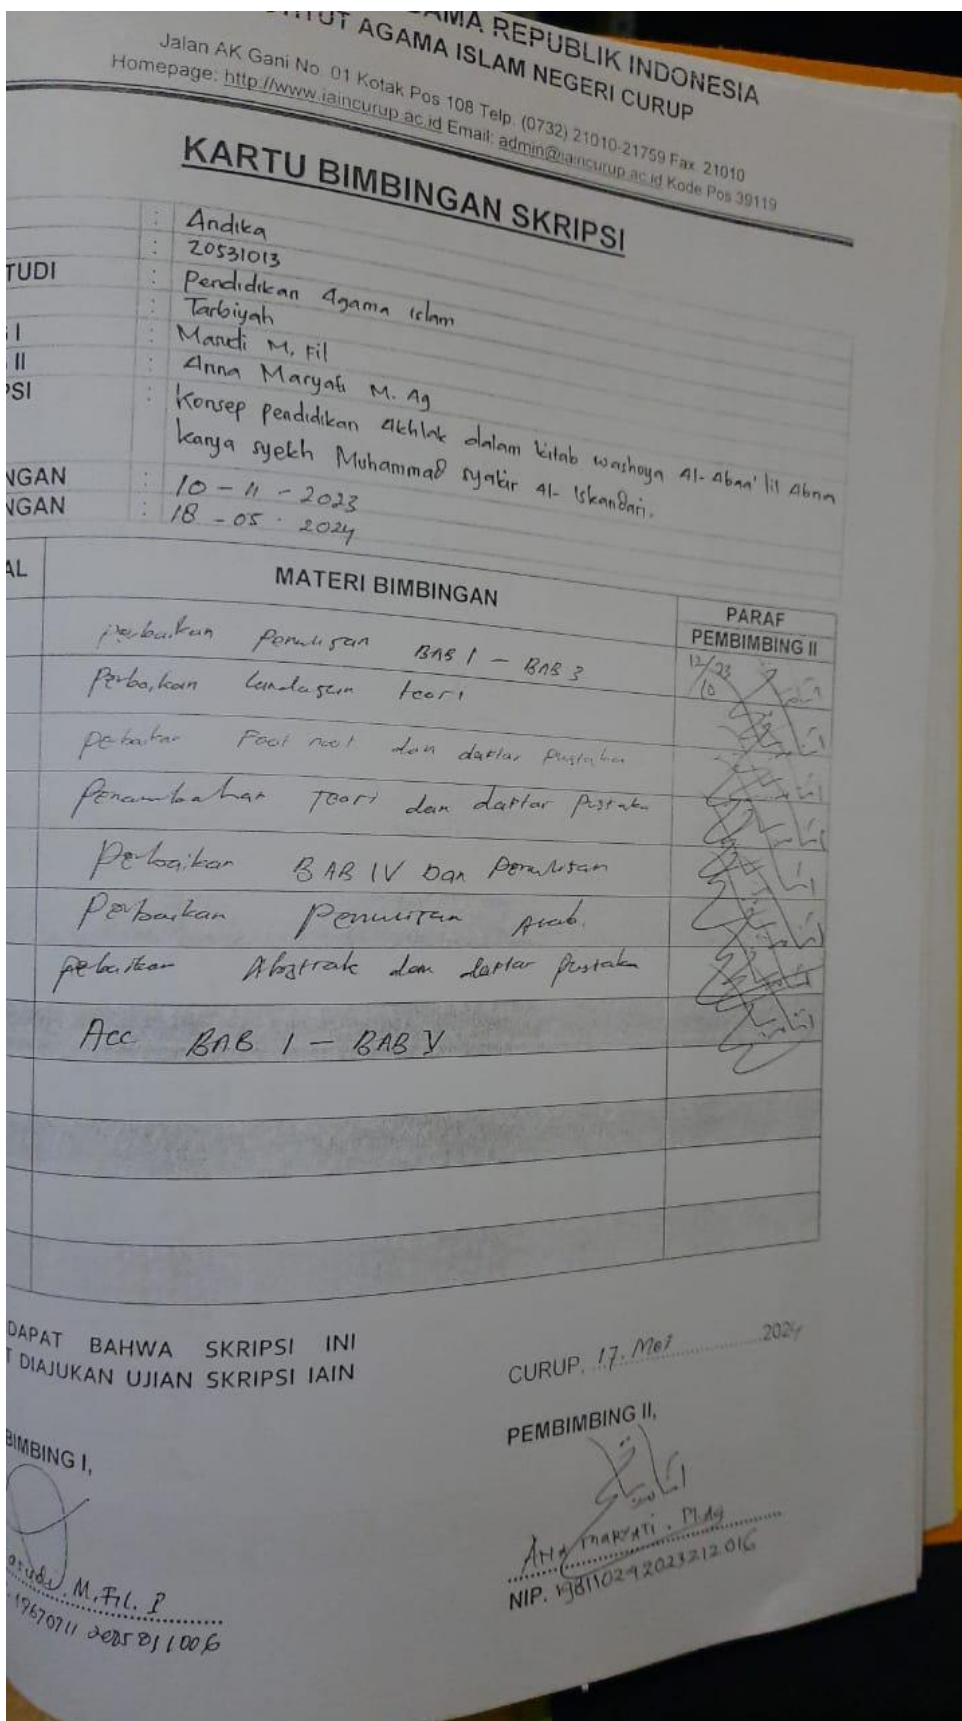 AMA REPUBLIK INDONESIA
TITUT AGAMA ISLAM NEGERI CURUP
Jalan AK Gani No. 01 Kotak Pos 108 Telp. (0732) 21010-21759 Fax. 21010
Homepage: http://www.iaincurup.ac.id Email: admin@iaincurup.ac.id Kode Pos 39119
KARTU BIMBINGAN SKRIPSI
: Andika
: 20531013
TUDI : Pendidikan Agama Islam
: Tarbiyah
I : M. Fil
II : Anna Maryati M. Ag
PSI : Konsep pendidikan Akhlak dalam kitab washoya Al-Abaa' lil Abna
karya syekh Muhammad syakir Al-Iskandari.
NGAN : 10 - 11 - 2023
NGAN : 18 - 05 - 2024
AL MATERI BIMBINGAN PARAF
PEMBIMBING II
perbaikan Penulisan BAB 1 - BAB 3 12/23
/10
Perbaikan landasan teori
perbaikan Foot noot dan daftar pustaka
Penambahan Teori dan daftar pustaka
Perbaikan BAB IV Dan Penulisan
Perbaikan Penulisan Arab.
pebaikan Abstrak dan daftar Pustaka
Acc BAB 1 - BAB V
DAPAT BAHWA SKRIPSI INI
T DIAJUKAN UJIAN SKRIPSI IAIN
CURUP, 17. Mei 2024
BIMBING I,
PEMBIMBING II,
M.Fil. I
Ana Maryati. M.Ag
NIP. 198110292023212016